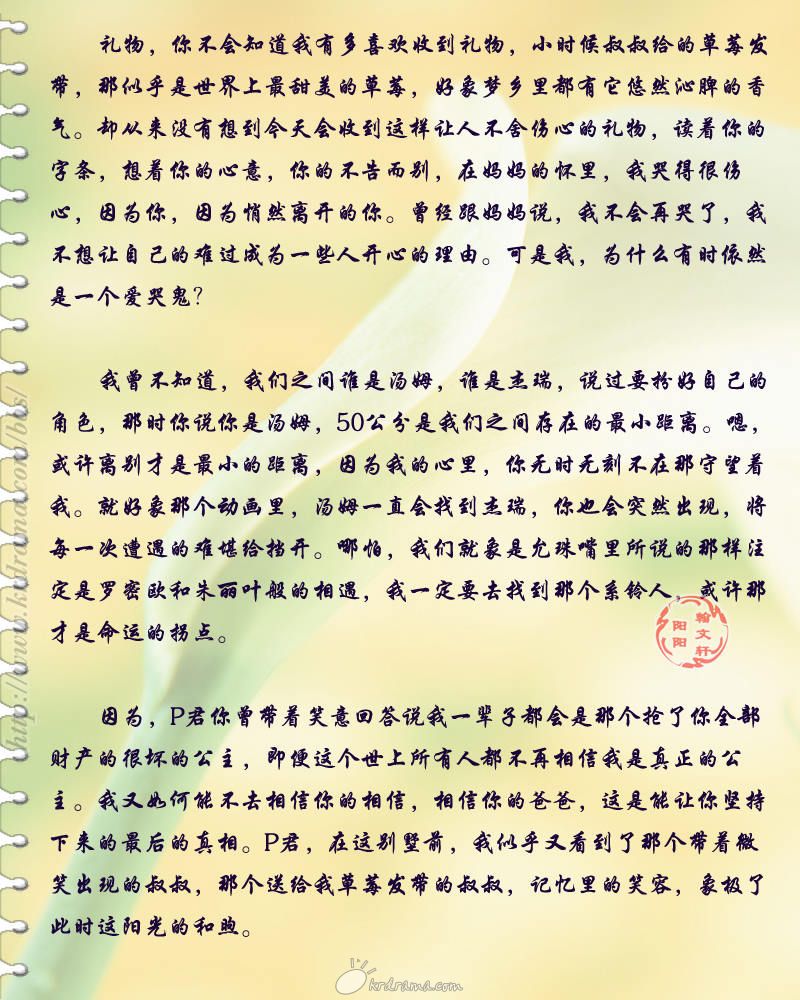 礼物，你不会知道我有多喜欢收到礼物，小时候叔叔给的草莓发
带，那似乎是世界上最甜美的草莓，好象梦乡里都有它悠然沁脾的香
气。却从来没有想到今天会收到这样让人不舍伤心的礼物，读着你的
字条，想着你的心意，你的不告而别，在妈妈的怀里，我哭得很伤
心，因为你，因为悄然离开的你。曾经跟妈妈说，我不会再哭了，我
不想让自己的难过成为一些人开心的理由。可是我，为什么有时依然
是一个爱哭鬼？
我曾不知道，我们之间谁是汤姆，谁是杰瑞，说过要扮好自己的
角色，那时你说你是汤姆，50公分是我们之间存在的最小距离。嗯，
或许离别才是最小的距离，因为我的心里，你无时无刻不在那守望着
我。就好象那个动画里，汤姆一直会找到杰瑞，你也会突然出现，将
每一次遭遇的难堪给挡开。哪怕，我们就象是允珠嘴里所说的那样注
定是罗密欧和朱丽叶般的相遇，我一定要去找到那个系铃人，或许那
才是命运的拐点。
翰文轩
阳阳
因为，P君你曾带着笑意回答说我一辈子都会是那个抢了你全部
财产的很坏的公主，即便这个世上所有人都不再相信我是真正的公
主。我又如何能不去相信你的相信，相信你的爸爸，这是能让你坚持
下来的最后的真相。P君，在这别墅前，我似乎又看到了那个带着微
笑出现的叔叔，那个送给我草莓发带的叔叔，记忆里的笑容，象极了
此时这阳光的和煦。
http://www.krdrama.com/bbs/
krdrama.com